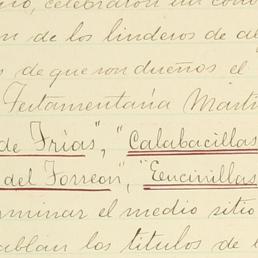 no, celebraron un con
n de los linderos de al
s de que son dueños el "
Testamentaria Marti
de Frias", "Calabacillas
del Torreon", "Eencinillas
erminar el medio sitio
ablan los titulos de l